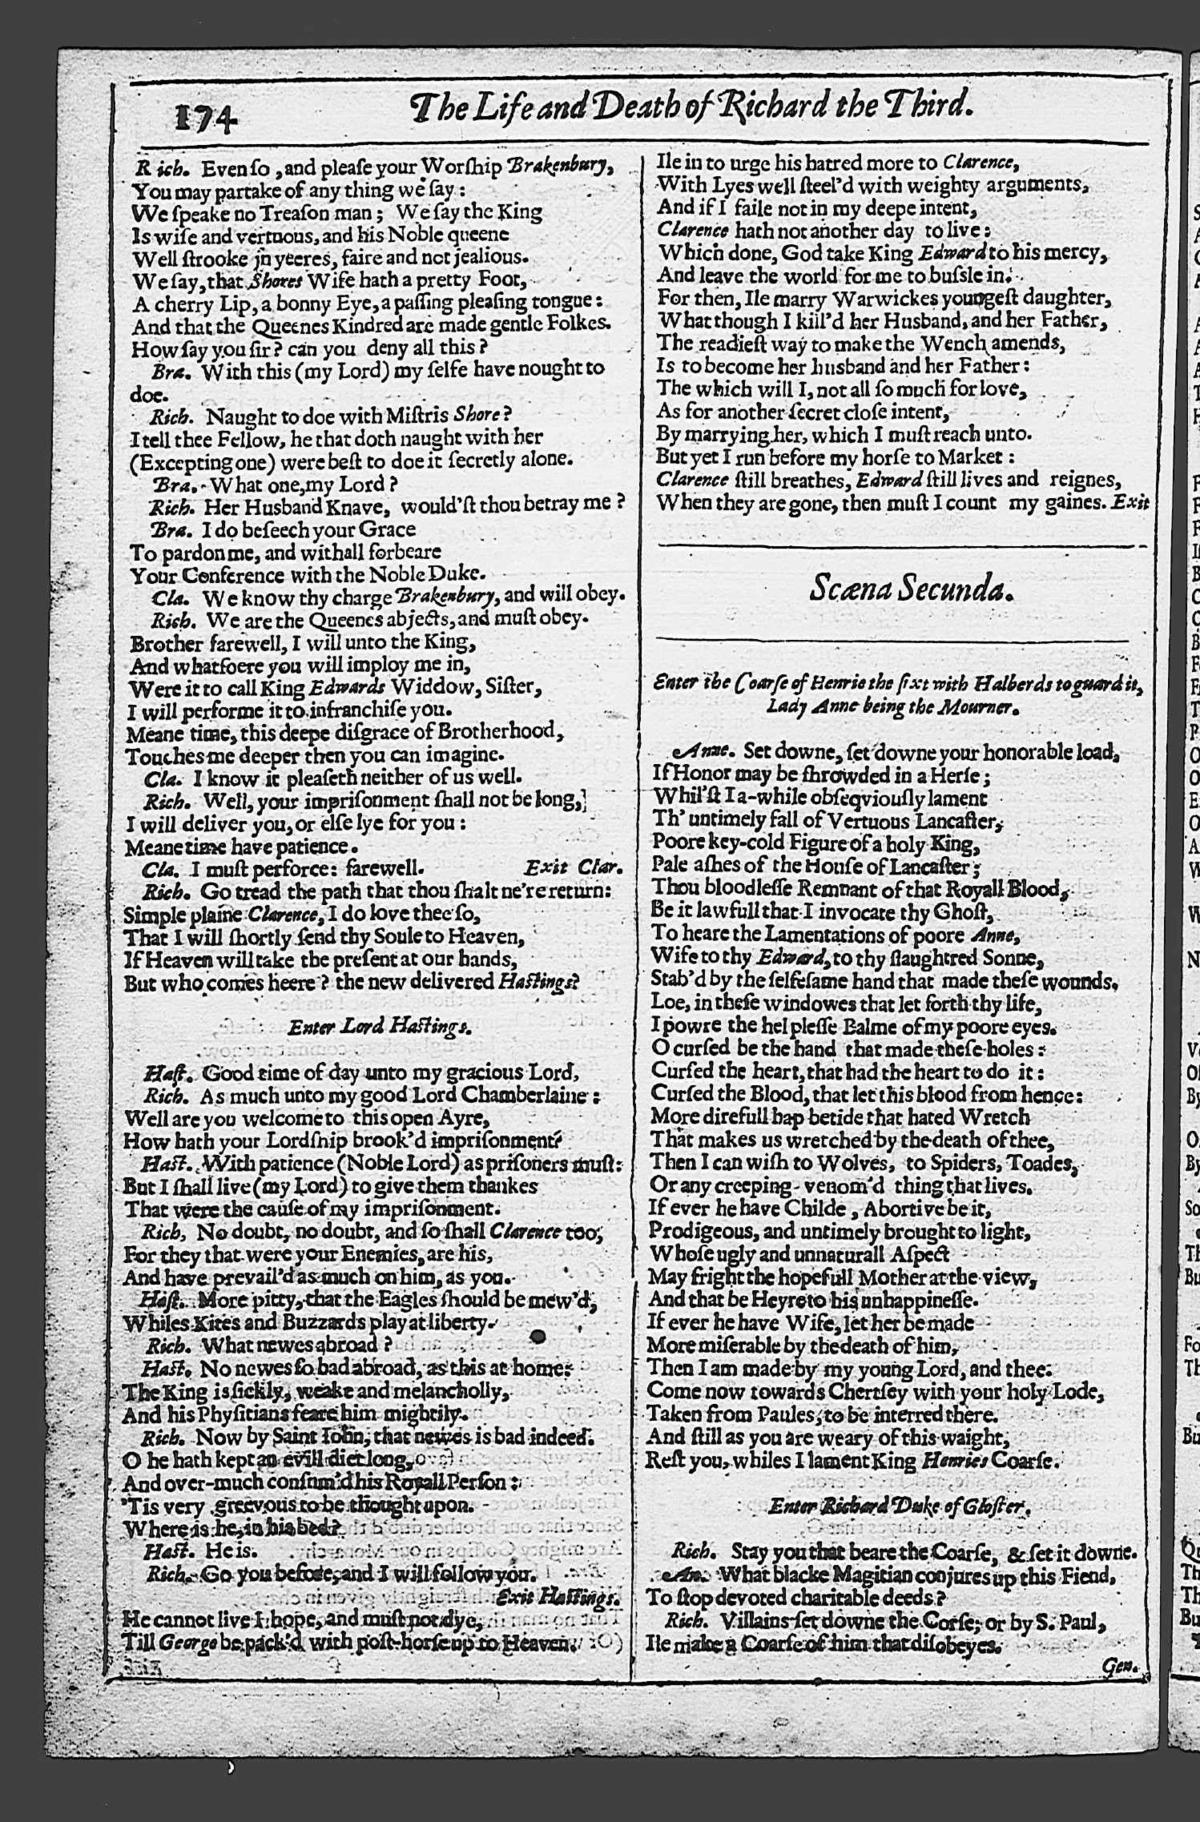 174
The Life and Death of Richard the Third.
Rich. Even ſo , and pleaſe your Worſhip Brakenbury,
You may partake of any thing we ſay :
We ſpeake no Treaſon man ; We ſay the King
Is wiſe and vertuous, and his Noble queene
Well ſtrooke in yeeres, faire and not jealious.
We ſay, that Shores Wife hath a pretty Foot,
A cherry Lip, a bonny Eye, a paſſing pleaſing tongue :
And that the Queenes Kindred are made gentle Folkes.
How ſay you ſir ? can you deny all this ?
Bra. With this (my Lord) my ſelfe have nought to
doe.
Rich. Naught to doe with Miſtris Shore ?
I tell thee Fellow, he that doth naught with her
(Excepting one) were beſt to doe it ſecretly alone.
Bra. What one, my Lord ?
Rich. Her Husband Knave, would'ſt thou betray me ?
Bra. I do beſeech your Grace
To pardon me, and withall forbeare
Your Conference with the Noble Duke.
Cla. We know thy charge Brakenbury, and will obey.
Rich. We are the Queenes abjects, and muſt obey.
Brother farewell, I will unto the King,
And whatſoere you will imploy me in,
Were it to call King Edwards Widdow, Siſter,
I will performe it to infranchiſe you.
Meane time, this deepe diſgrace of Brotherhood,
Touches me deeper then you can imagine.
Cla. I know it pleaſeth neither of us well.
Rich. Well, your impriſonment ſhall not be long,
I will deliver you, or elſe lye for you :
Meane time have patience.
Cla. I muſt perforce: farewell. Exit Clar.
Rich. Go tread the path that thou ſhalt ne're return:
Simple plaine Clarence, I do love thee ſo,
That I will ſhortly ſend thy Soule to Heaven,
If Heaven will take the preſent at our hands,
But who comes heere ? the new delivered Haſtings?
Enter Lord Haſtings.
Haſt. Good time of day unto my gracious Lord,
Rich. As much unto my good Lord Chamberlaine :
Well are you welcome to this open Ayre,
How hath your Lordſhip brook'd impriſonment?
Haſt. With patience (Noble Lord) as priſoners muſt:
But I ſhall live (my Lord) to give them thankes
That were the cauſe of my impriſonment.
Rich, No doubt, no doubt, and ſo ſhall Clarence too,
For they that were your Enemies, are his,
And have prevail'd as much on him, as you.
Haſt. More pitty, that the Eagles ſhould be mew'd,
Whiles Kites and Buzzards play at liberty.
Rich. What newes abroad ?
Haſt. No newes ſo bad abroad, as this at home:
The King is ſickly, weake and melancholly,
And his Phyſitians feare him mightily.
Rich. Now by Saint Iohn, that newes is bad indeed.
O he hath kept an evill diet long,
And over-much conſum'd his Royall Perſon :
'Tis very greevous to be thought upon.
Where is he, in his bed ?
Haſt. He is.
Rich. Go you before, and I will follow you.
Exit Haſtings.
He cannot live I hope, and muſt not dye,
Till George be pack'd with poſt-horſe up to Heaven.
Ile in to urge his hatred more to Clarence,
With Lyes well ſteel'd with weighty arguments,
And if I faile not in my deepe intent,
Clarence hath not another day to live :
Which done, God take King Edward to his mercy,
And leave the world for me to buſsle in.
For then, Ile marry Warwickes youngeſt daughter,
What though I kill'd her Husband, and her Father,
The readieſt way to make the Wench amends,
Is to become her husband and her Father :
The which will I, not all ſo much for love,
As for another ſecret cloſe intent,
By marrying her, which I muſt reach unto.
But yet I run before my horſe to Market :
Clarence ſtill breathes, Edward ſtill lives and reignes,
When they are gone, then muſt I count my gaines. Exit
Scæna Secunda.
Enter the Coarſe of Henrie the ſixt with Halberds to guard it,
Lady Anne being the Mourner.
Anne. Set downe, ſet downe your honorable load,
If Honor may be ſhrowded in a Herſe ;
Whil'ſt I a-while obſeqviouſly lament
Th' untimely fall of Vertuous Lancaſter,
Poore key-cold Figure of a holy King,
Pale aſhes of the Houſe of Lancaſter ;
Thou bloodleſſe Remnant of that Royall Blood,
Be it lawfull that I invocate thy Ghoſt,
To heare the Lamentations of poore Anne,
Wife to thy Edward, to thy ſlaughtred Sonne,
Stab'd by the ſelfeſame hand that made theſe wounds.
Loe, in theſe windowes that let forth thy life,
I powre the helpleſſe Balme of my poore eyes.
O curſed be the hand that made theſe holes :
Curſed the heart, that had the heart to do it :
Curſed the Blood, that let this blood from hence :
More direfull hap betide that hated Wretch
That makes us wretched by the death of thee,
Then I can wiſh to Wolves, to Spiders, Toades,
Or any creeping venom'd thing that lives.
If ever he have Childe , Abortive be it,
Prodigeous, and untimely brought to light,
Whoſe ugly and unnaturall Aſpect
May fright the hopefull Mother at the view,
And that be Heyre to his unhappineſſe.
If ever he have Wife, let her be made
More miſerable by the death of him,
Then I am made by my young Lord, and thee.
Come now towards Chertſey with your holy Lode,
Taken from Paules, to be interred there.
And ſtill as you are weary of this waight,
Reſt you, whiles I lament King Henries Coarſe.
Enter Richard Duke of Gloſter.
Rich. Stay you that beare the Coarſe, & ſet it downe.
An. What blacke Magitian conjures up this Fiend,
To ſtop devoted charitable deeds ?
Rich. Villains ſet downe the Corſe; or by S. Paul,
Ile make a Coarſe of him that diſobeyes.
Gen.